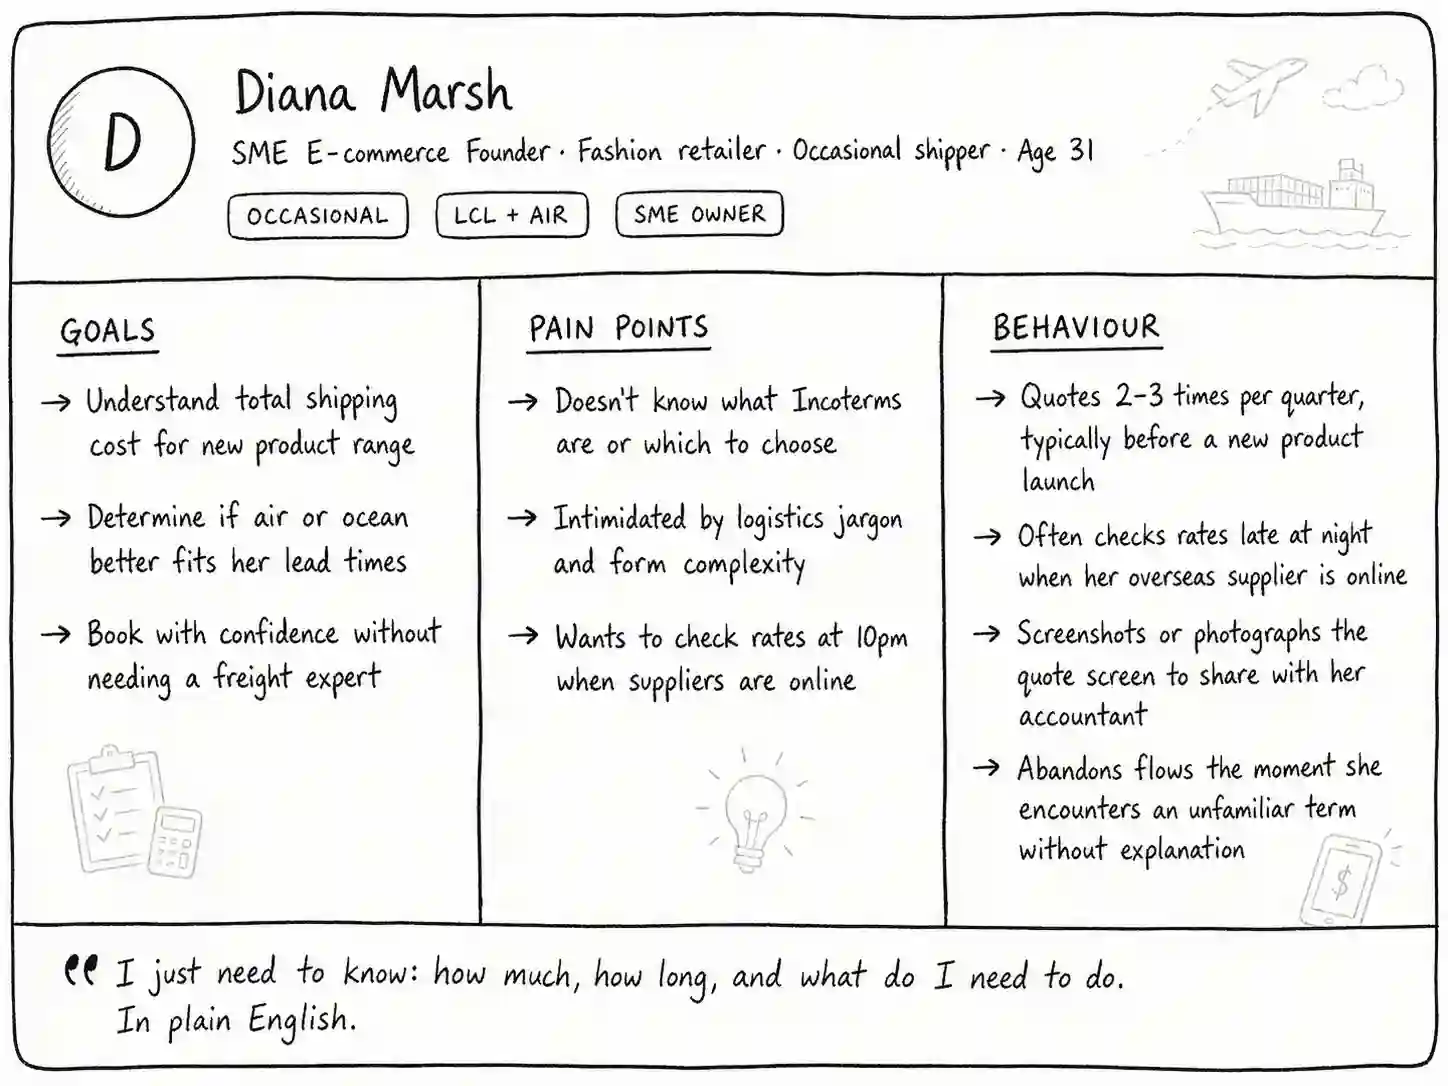 D
Diana Marsh
SME E-commerce Founder · Fashion retailer · Occasional shipper · Age 31
OCCASIONAL
LCL + AIR
SME OWNER
GOALS
→ Understand total shipping
cost for new product range
→ Determine if air or ocean
better fits her lead times
→ Book with confidence without
needing a freight expert
PAIN POINTS
→ Doesn't know what Incoterms
are or which to choose
→ Intimidated by logistics jargon
and form complexity
→ Wants to check rates at 10pm
when suppliers are online
BEHAVIOUR
→ Quotes 2-3 times per quarter,
typically before a new product
launch
→ Often checks rates late at night
when her overseas supplier is online
→ Screenshots or photographs the
quote screen to share with her
accountant
→ Abandons flows the moment she
encounters an unfamiliar term
without explanation
$
“ I just need to know: how much, how long, and what do I need to do.
In plain English.